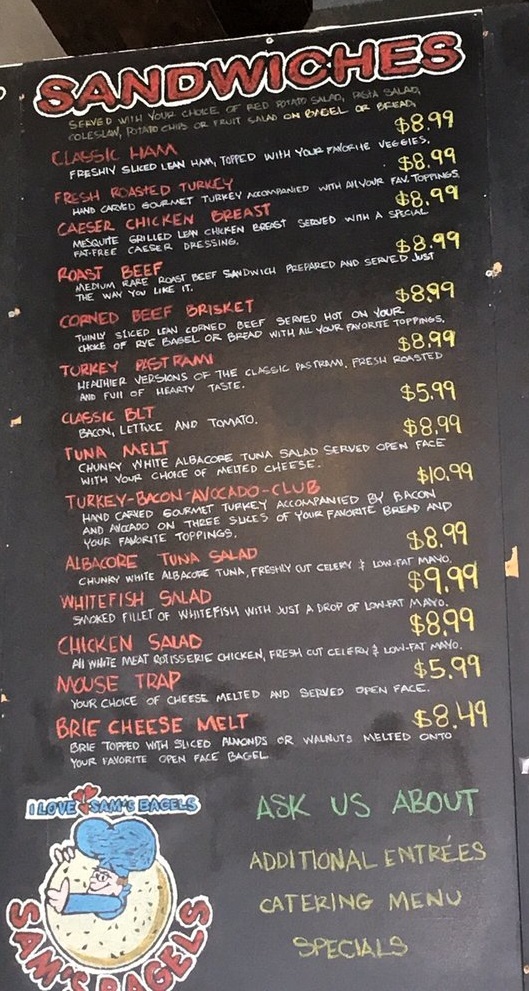 SANDWICHES
SERVED WITH YOUR CHOICE OF RED POTATO SALAD, PASTA SALAD,
COLESLAW, POTATO CHIPS OR FRUIT SALAD ON BAGEL OR BREAD,
CLASSIC HAM $8.99
FRESHLY SLICED LEAN HAM, TOPPED WITH YOUR FAVORITE VEGGIES,
FRESH ROASTED TURKEY $8.99
HAND CARVED GOURMET TURKEY ACCOMPANIED WITH All YOUR FAV. TOPPINGS.
CAESER CHICKEN BREAST $8.99
MESQUITE GRILLED LEAN CHICKEN BREAST SERVED WITH A SPECIAL
FAT-FREE CAESER DRESSING.
ROAST BEEF $8.99
MEDIUM RARE ROAST BEEF SANDWICH PREPARED AND SERVED JUST
THE WAY YOU LIKE IT.
CORNED BEEF BRISKET $8.99
THINLY SLICED LEAN CORNED BEEF SERVED HOT ON YOUR
CHOICE OF RYE BAGEL OR BREAD WITH ALL YOUR FAVORITE TOPPINGS.
TURKEY PASTRAMI $8.99
HEALTHIER VERSIONS OF THE CLASSIC PASTRAMI, FRESH ROASTED
AND FUll OF HEARTY TASTE.
CLASSIC BLT $5.99
BACON, LETTUCE AND TOMATO.
TUNA MELT $8.99
CHUNKY WHITE ALBACORE TUNA SALAD SERVED OPEN FACE
WITH YOUR CHOICE OF MELTED CHEESE.
TURKEY-BACON-AVOCADO-CLUB $10.99
HAND CARVED GOURMET TURKEY ACCOMPANIED BY BACON
AND AVOCADO ON THREE SLICES OF YOUR FAVORITE BREAD AND
YOUR FAVORITE TOPPINGS.
ALBACORE TUNA SALAD $8.99
CHUNKY WHITE ALBACORE TUNA, FRESHLY CUT CELERY & LOW-FAT MAYO.
WHITEFISH SALAD $9.99
SMOKED FILLET OF WHITEFISH WITH JUST A DROP OF LOW-FAT MAYO.
CHICKEN SALAD $8.99
All WHITE MEAT ROTISSERIE CHICKEN, FRESH CUT CELERY & LOW-FAT MAYO.
MOUSE TRAP $5.99
YOUR CHOICE OF CHEESE MELTED AND SERVED OPEN FACE.
BRIE CHEESE MELT $8.49
BRIE TOPPED WITH SLICED ALMONDS OR WALNUTS MELTED ONTO
YOUR FAVORITE OPEN FACE BAGEL
I LOVE SAM'S BAGELS
SAM'S BAGELS
ASK US ABOUT
ADDITIONAL ENTRÉES
CATERING MENU
SPECIALS